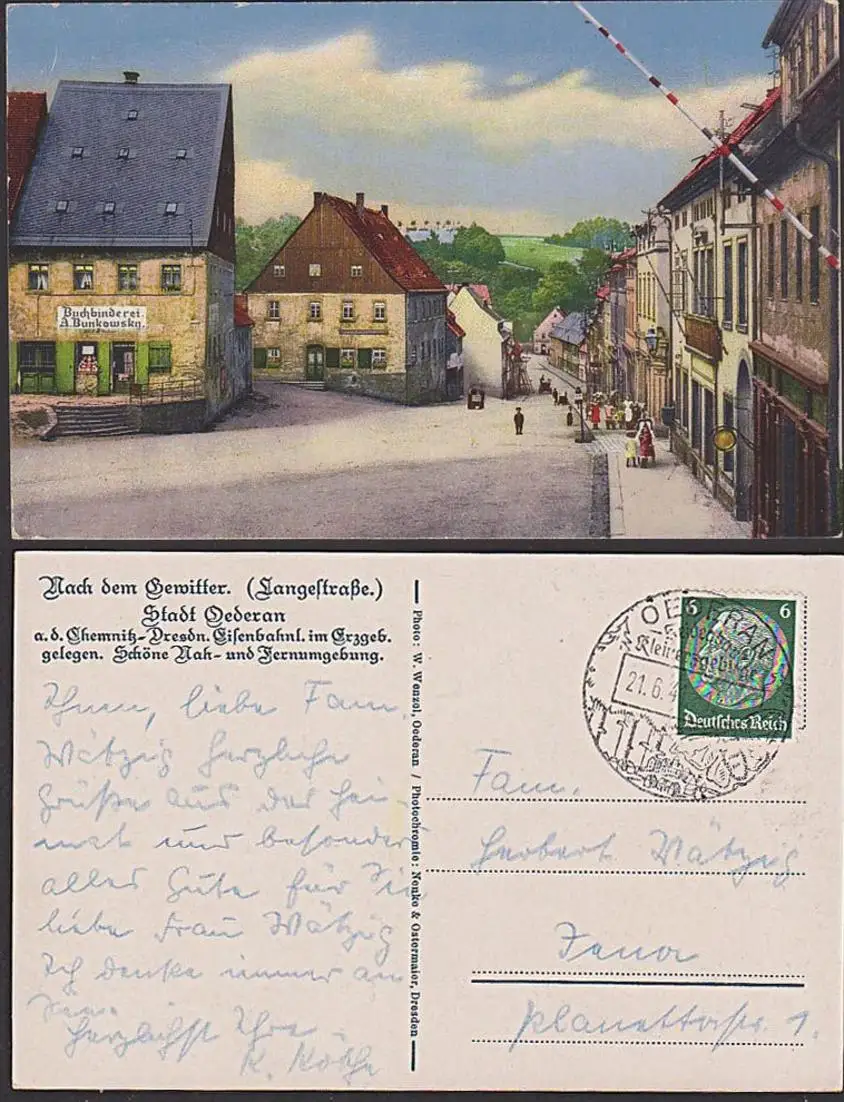 Buchbinderei.
A. Bunkowsky.
Nach dem Gewitter. (Langestraße.)
Stadt Oederan
a. d. Chemnitz-Dresdn. Eisenbahnl. im Erzgeb.
gelegen. Schöne Nah- und Fernumgebung.
Ihnen, liebe Fam.
Wätzig herzliche
Grüße aus der Hei-
mat und besonders
alles Gute für Sie
liebe Frau Wätzig
Ich denke immer an
Sie.
Herzlichst Ihre
K. Köthe
Photo: W. Wenzel, Oederan / Photochromie: Nenke & Ostermaier, Dresden
OEDERAN
Kleinerzgebirge
21.6.4
6 6
Deutsches Reich
Fam.
Herbert Wätzig
Jena
Planettastr. 1.